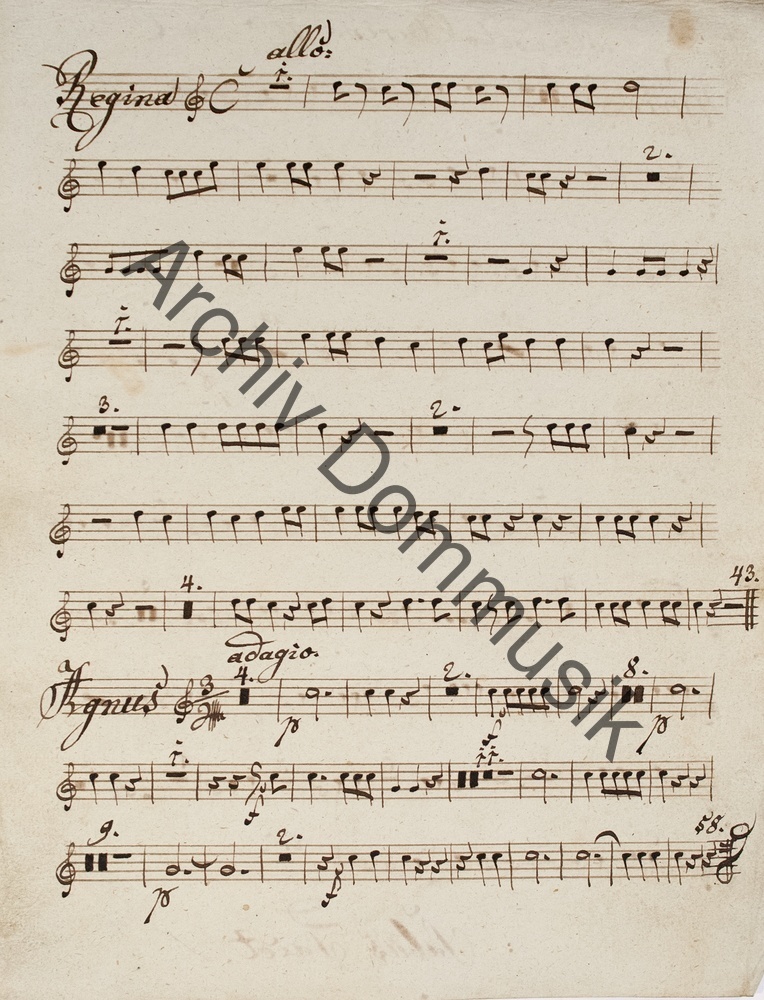 allo:
Regina
1.
2.
1.
1.
3. 2.
4. 43.
adagio.
Agnus 3 4. 2. 8.
p p
f
1. 11.
f
9. 2. 58.
p f
Archiv Dommusik